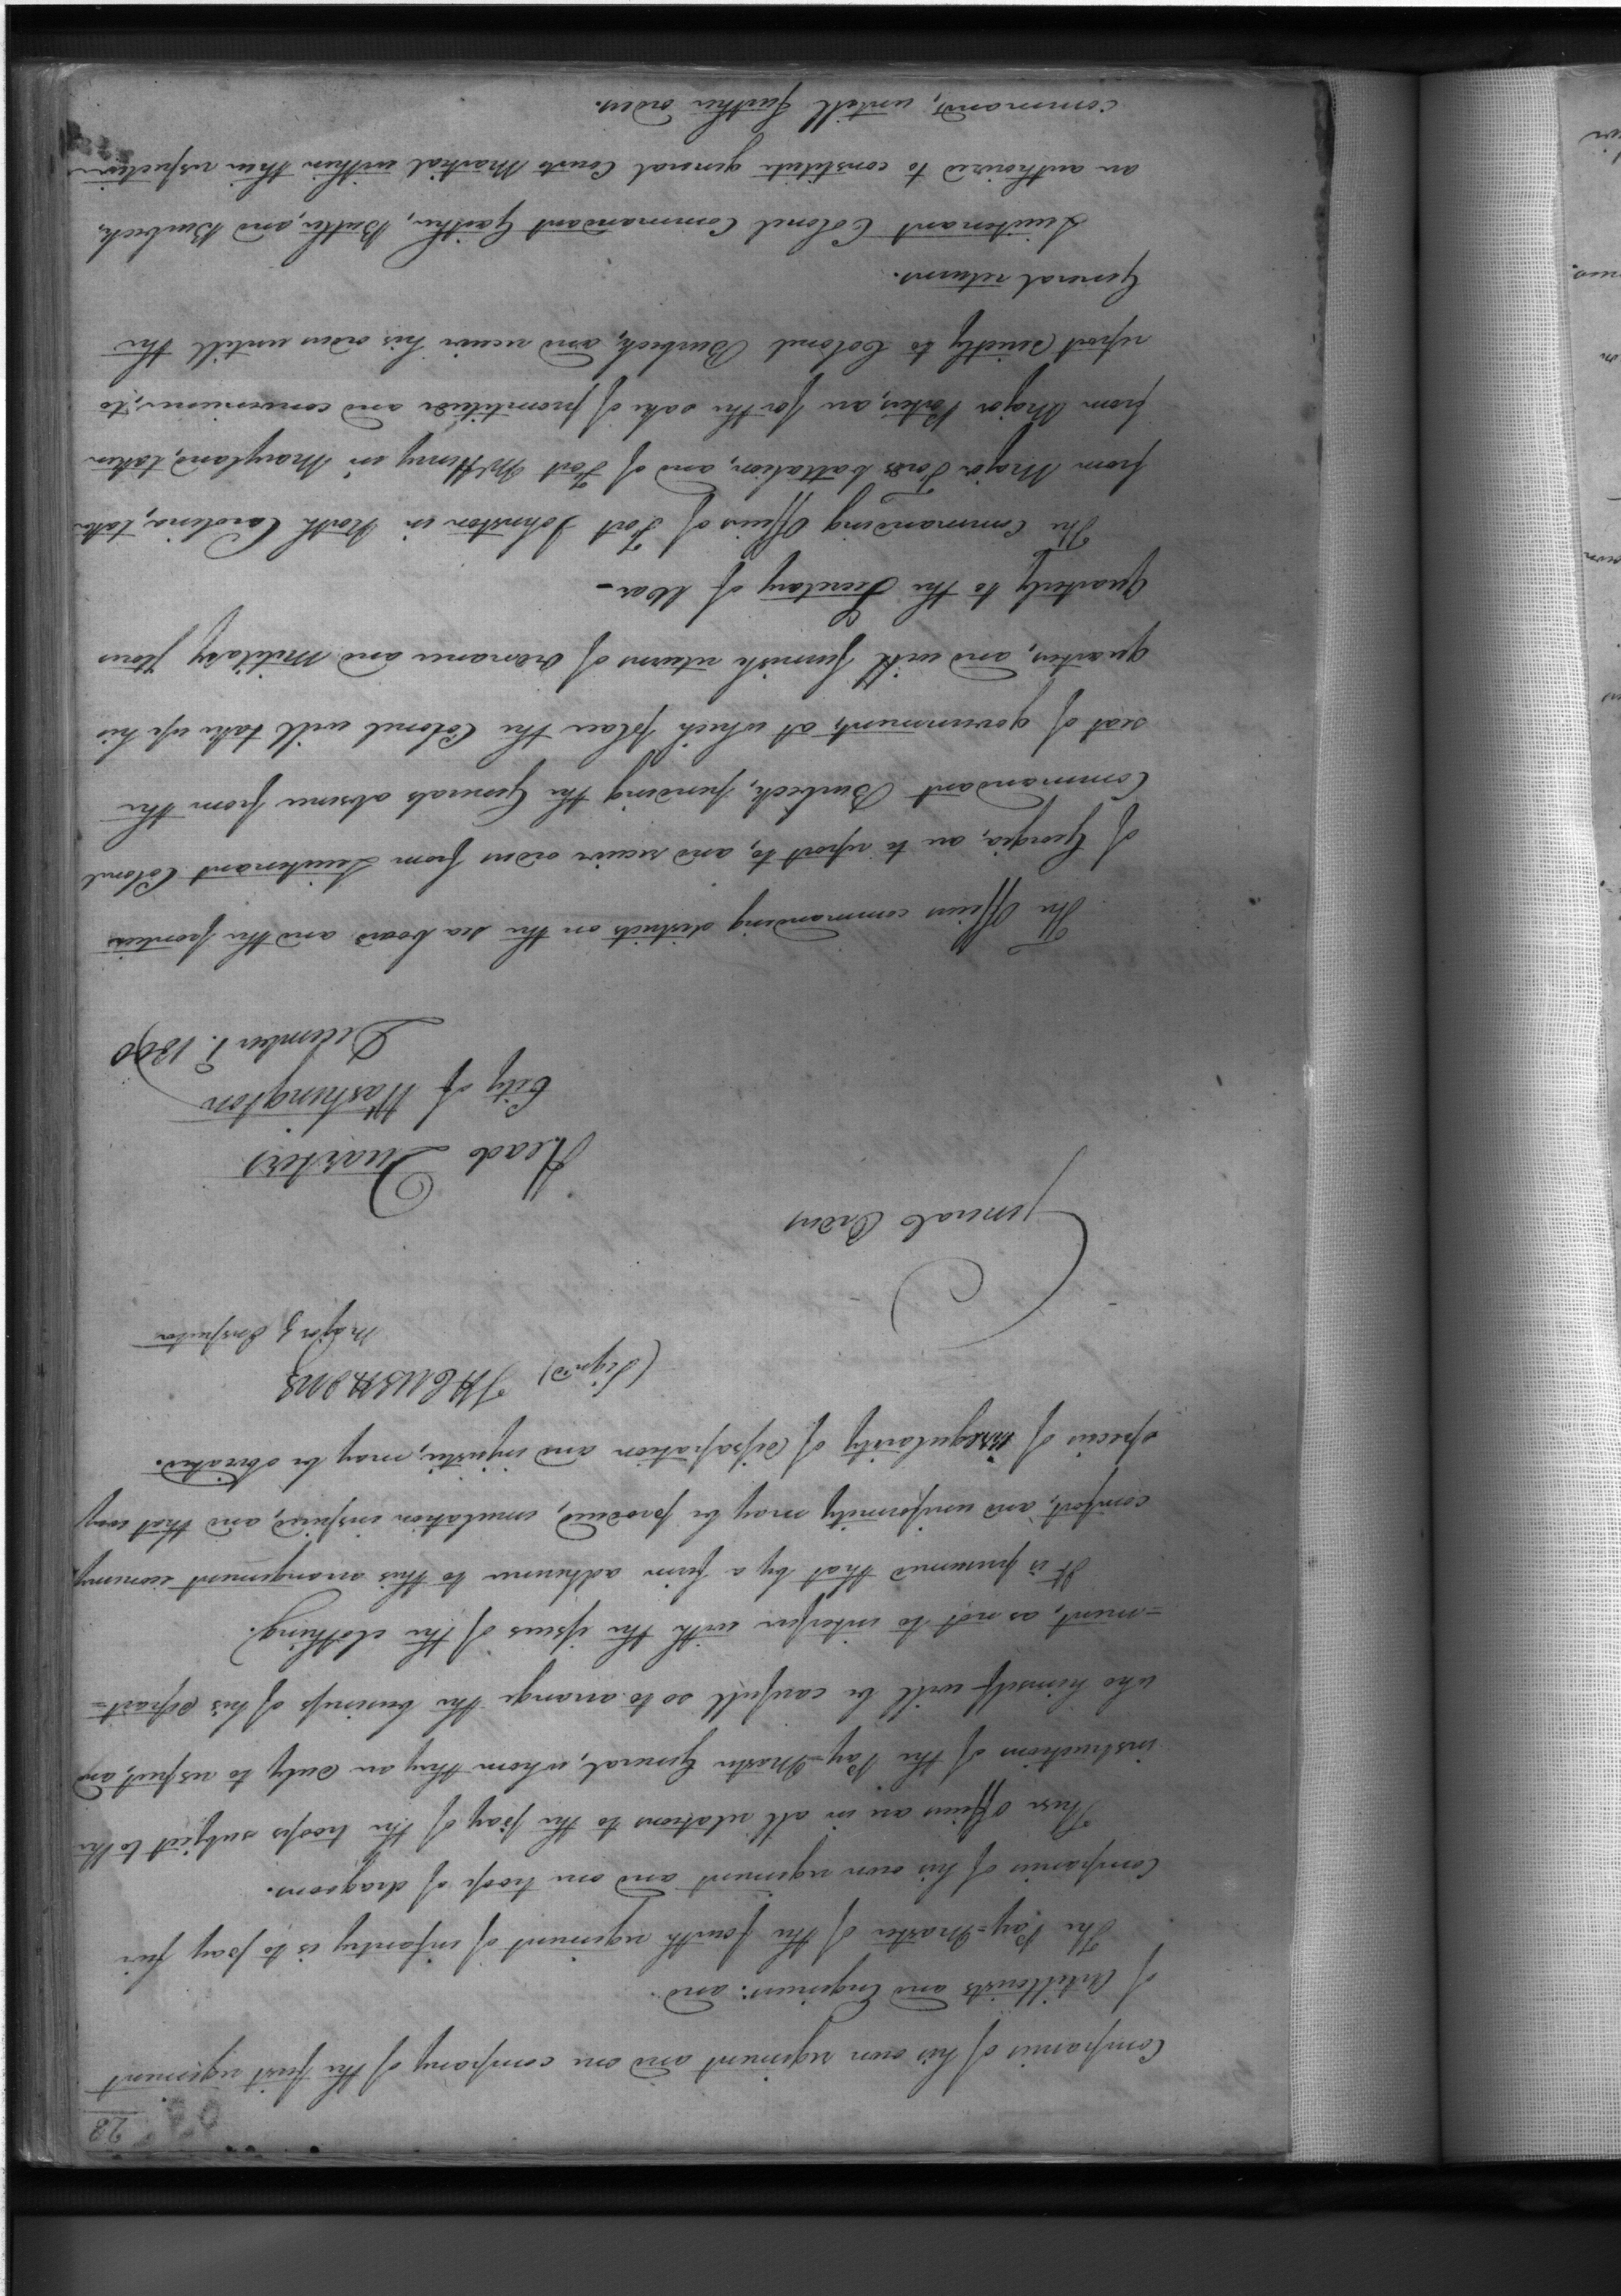 23
Companies of his own regiment and one company of the first regiment
of Artillerists and Engineers: and
The Pay-Master of the fourth regiment of infantry is to pay five
Companies of his own regiment and one troop of dragoons.
These officers are in all relations to the pay of the troops subject to the
instructions of the Pay-Master General, whom they are duly to respect, and
who himself will be carefull so to arrange the business of his depart=
=ment, as not to interfere with the issues of the clothing.
It is presumed that by a firm adherence to this arrangement economy
comfort, and uniformity may be produced, emulation inspired, and that every
species of irregularity of dissipation and injustice, may be obviated.
(Signed) T H CUSHING
Major & Inspector
General Orders
Head Quarters
City of Washington
December 1. 1800
The Officers commanding districts on the sea board and the frontiers
of Georgia, are to report to, and receive orders from Lieutenant Colonel
Commandant Burbeck, pending the Generals absence from the
seat of government, at which place the Colonel will take up his
quarters, and will furnish returns of Ordnance and Military stores
quarterly to the Secretary of War-
The Commanding Officers of Fort Johnston in North Carolina, taken
from Major Fords battalion, and of Fort McHenry in Maryland, taken
from Major Porters, are for the sake of promtitude and convenience, to
report directly to Colonel Burbeck, and receive his orders untill the
General returns.
Lieutenant Colonel Commandant Gaither, Butler, and Burbeck,
are authorized to constitute general Courts Martial within their respective
commands, untill further orders.